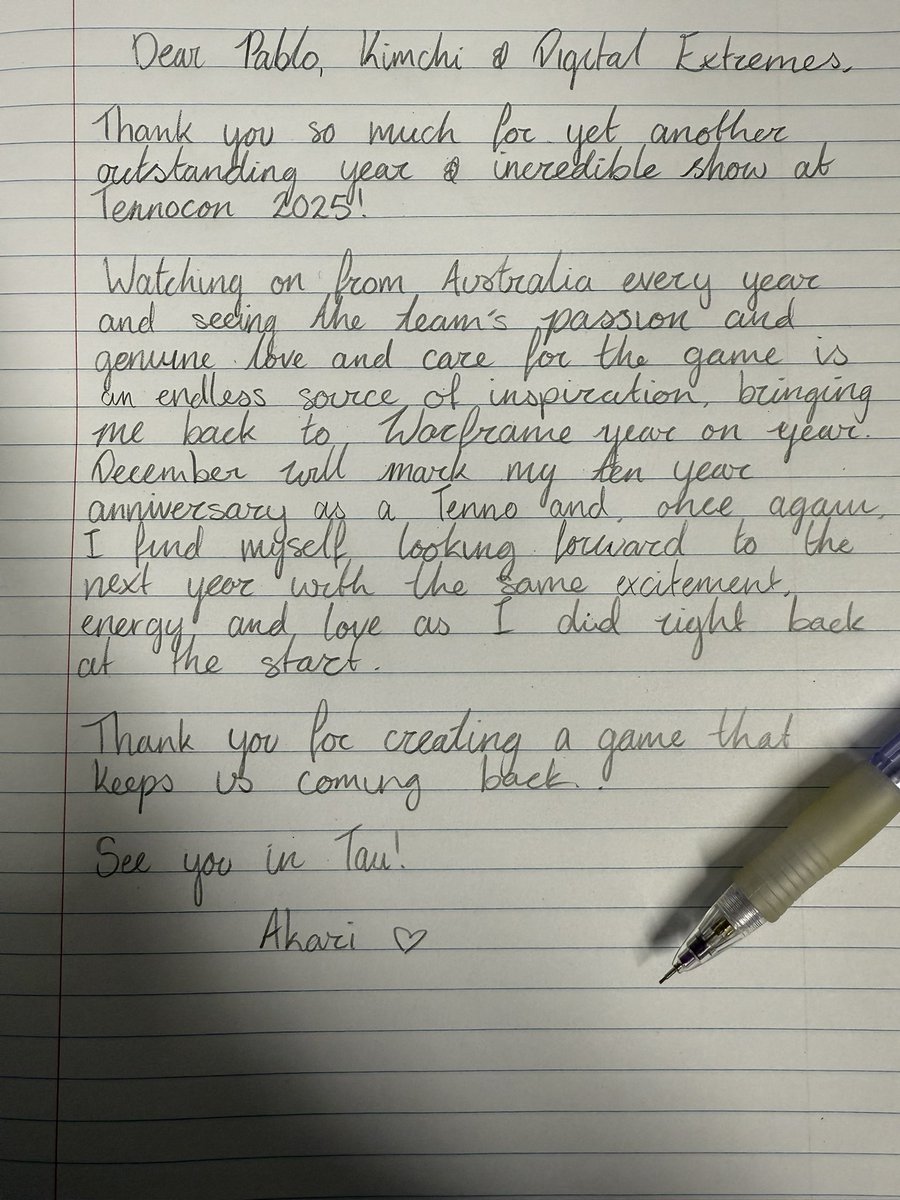 Dear Pablo, Kimchi & Digital Extremes,
Thank you so much for yet another
outstanding year & incredible show at
Tennocon 2025!
Watching on from Australia every year
and seeing the team's passion and
genuine love and care for the game is
an endless source of inspiration, bringing
me back to Warframe year on year.
December will mark my ten year
anniversary as a Tenno and, once again,
I find myself looking forward to the
next year with the same excitement,
energy and love as I did right back
at the start.
Thank you for creating a game that
keeps us coming back.
See you in Tau!
Akari ♡